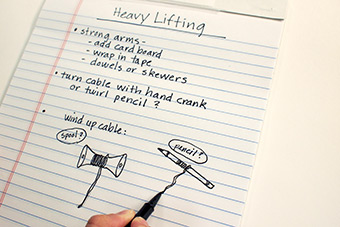 Heavy Lifting
• strong arms -
- add card board
- wrap in tape
- dowels or skewers
• turn cable with hand crank
or twirl pencil?
• wind up cable:
spool?
pencil?